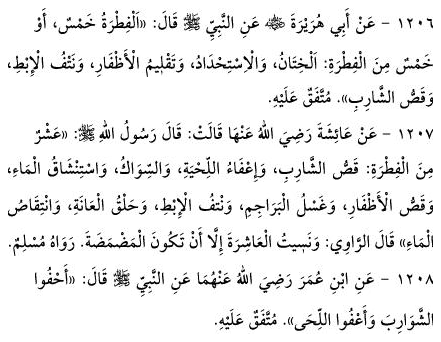 ١٢٠٦ - عَنْ أَبِي هُرَيْرَةَ ﷺ عَنِ النَّبِيِّ ﷺ قَالَ: «اَلْفِطْرَةُ خَمْسٌ، أَوْ
خَمْسٌ مِنَ الْفِطْرَةِ: اَلْخِتَانُ، وَالْاِسْتِحْدَادُ، وَتَقْلِيمُ الْأَظْفَارِ، وَنَتْفُ الْإِبْطِ،
وَقَصُّ الشَّارِبِ». مُتَّفَقٌ عَلَيْهِ.
١٢٠٧ - عَنْ عَائِشَةَ رَضِيَ اللهُ عَنْهَا قَالَتْ: قَالَ رَسُولُ اللهِ ﷺ: «عَشْرٌ
مِنَ الْفِطْرَةِ: قَصُّ الشَّارِبِ، وَإِعْفَاءُ اللِّحْيَةِ، وَالسِّوَاكُ، وَاسْتِنْشَاقُ الْمَاءِ،
وَقَصُّ الْأَظْفَارِ، وَغَسْلُ الْبَرَاجِمِ، وَنَتْفُ الْإِبْطِ، وَحَلْقُ الْعَانَةِ، وَانْتِقَاصُ
الْمَاءِ» قَالَ الرَّاوِي: وَنَسِيتُ الْعَاشِرَةَ إِلَّا أَنْ تَكُونَ الْمَضْمَضَةَ. رَوَاهُ مُسْلِمٌ.
١٢٠٨ - عَنِ ابْنِ عُمَرَ رَضِيَ اللهُ عَنْهُمَا عَنِ النَّبِيِّ ﷺ قَالَ: «أَحْفُوا
الشَّوَارِبَ وَأَعْفُوا اللِّحَى». مُتَّفَقٌ عَلَيْهِ.